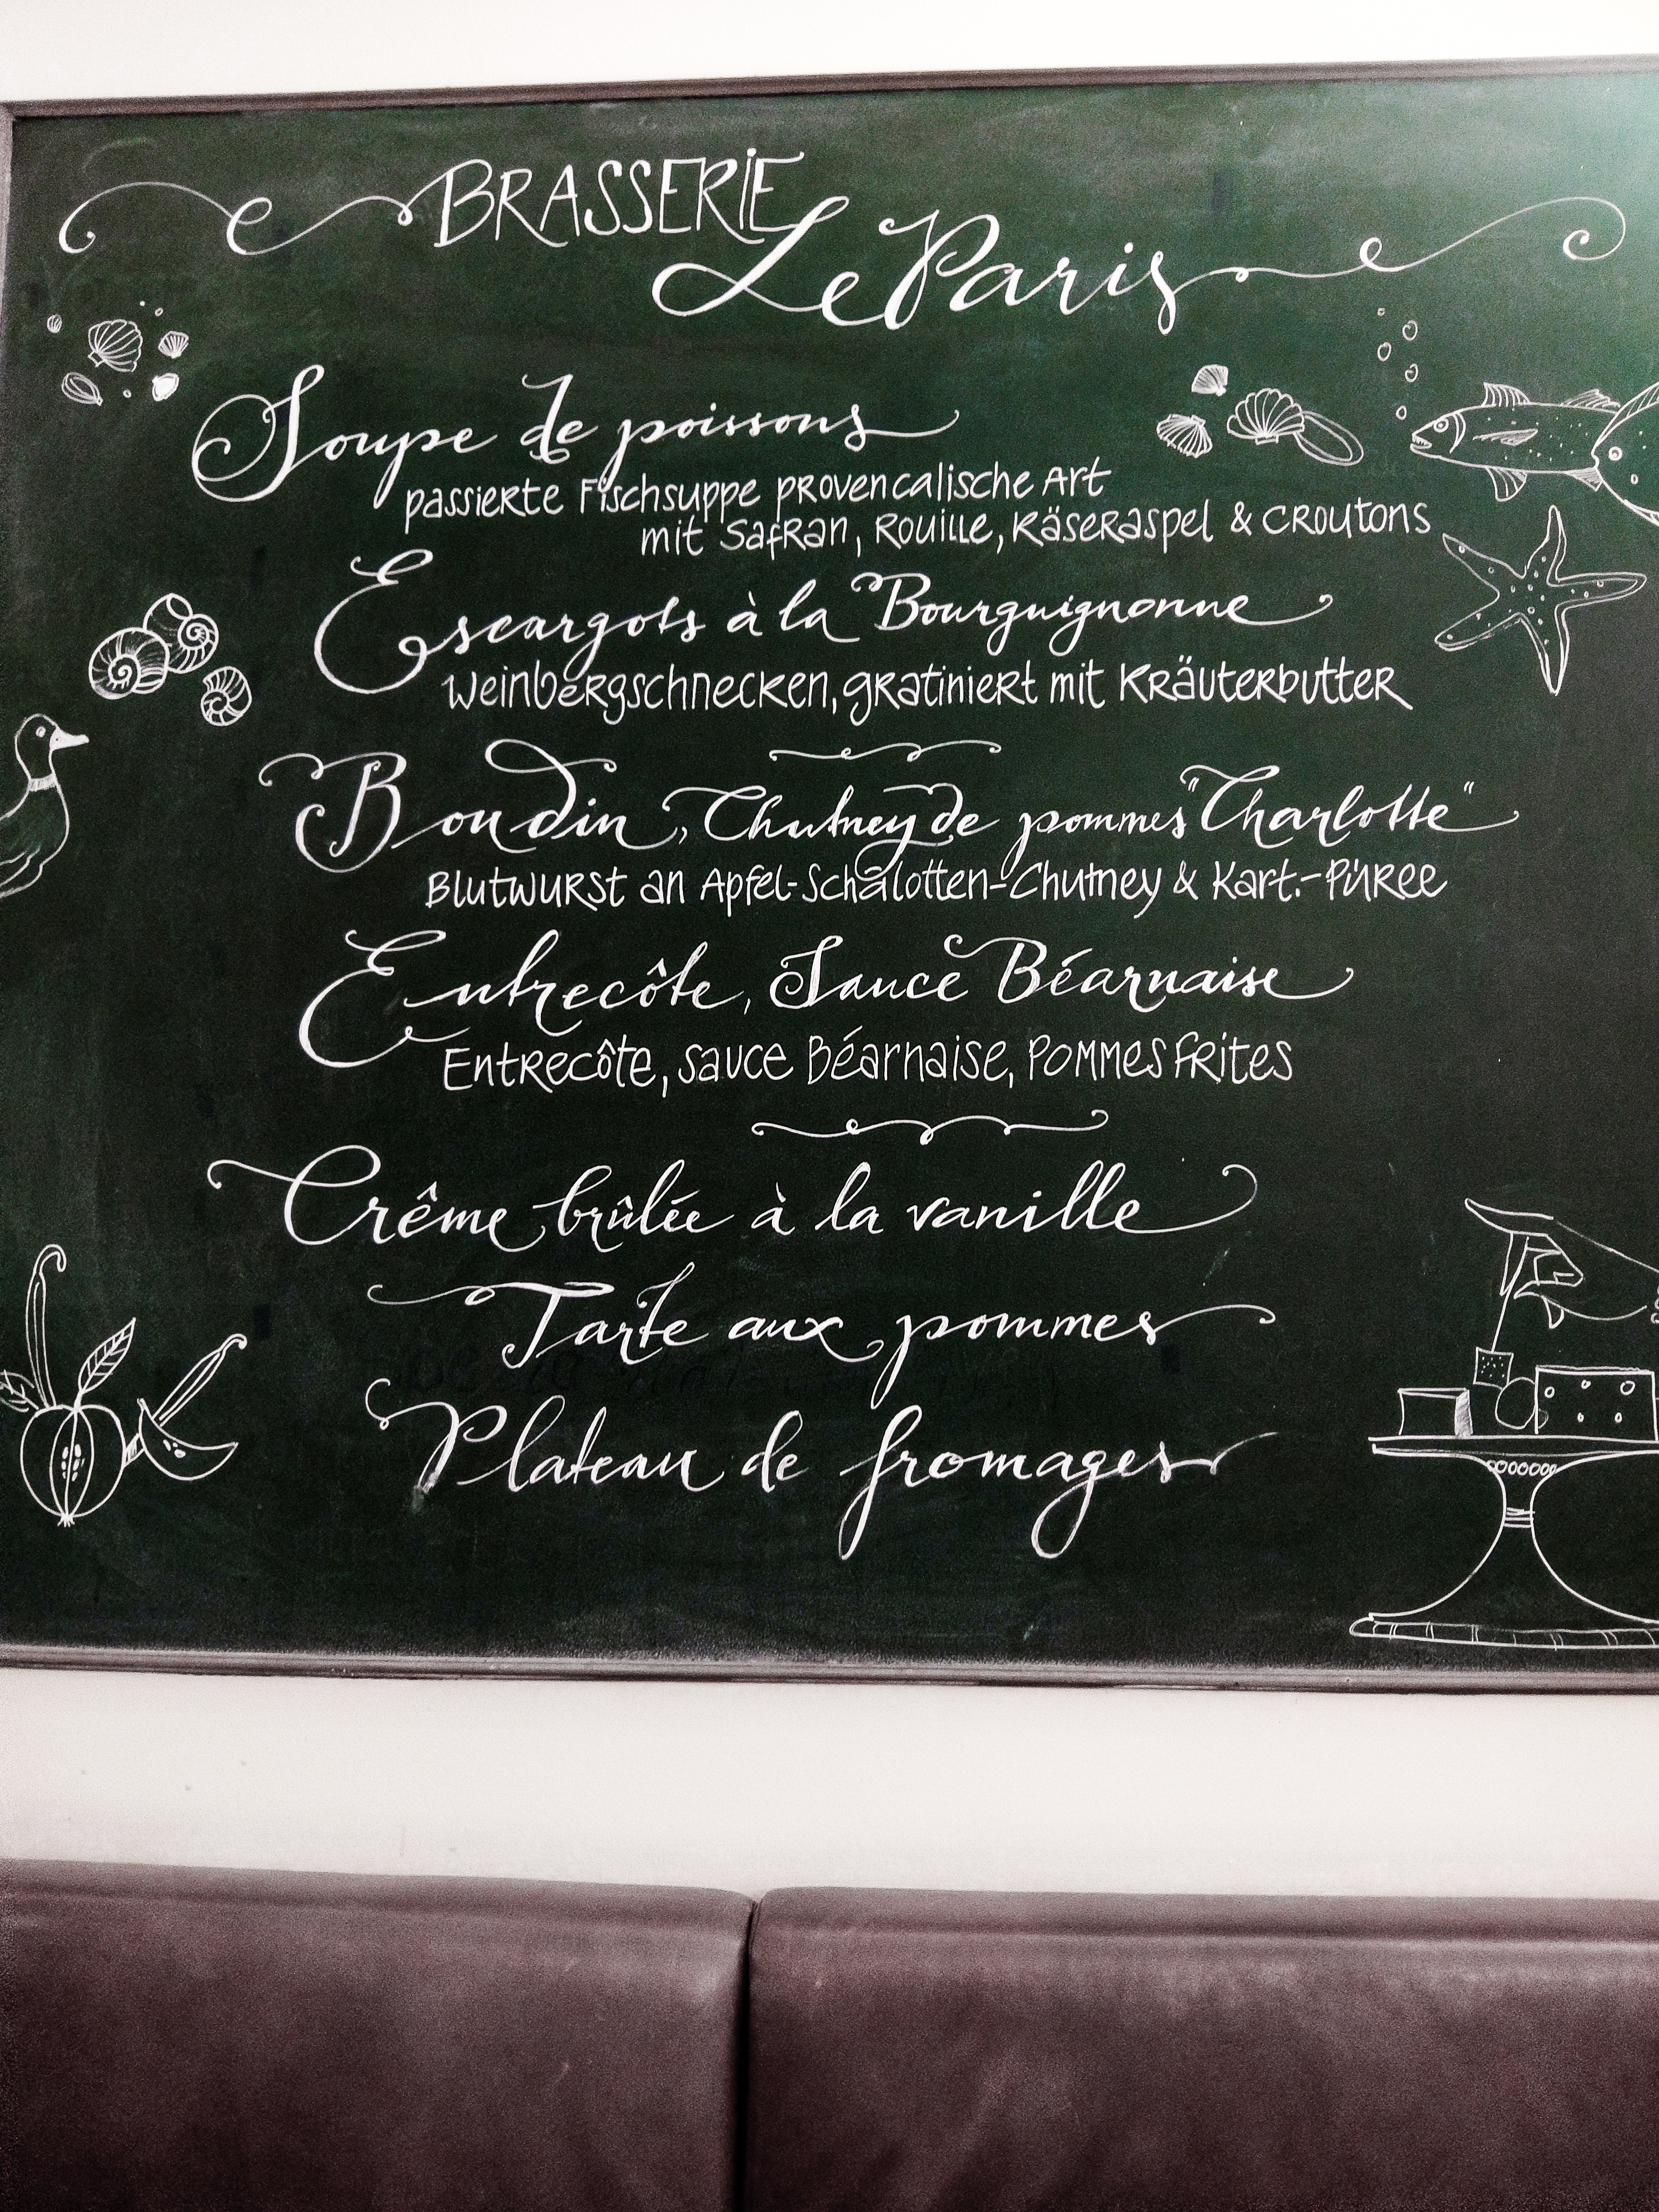 BRASSERIE
Le Paris
Soupe de poissons
passierte Fischsuppe provencalische Art
mit Safran, Rouille, Käseraspel & Croutons
Escargots à la Bourguignonne
Weinbergschnecken, gratiniert mit Kräuterbutter
Boudin, Chutney de pommes "Charlotte"
Blutwurst an Apfel-Schalotten-Chutney & Kart.-Püree
Entrecôte, Sauce Béarnaise
Entrecôte, Sauce Béarnaise, Pommes Frites
Crême brûlée à la vanille
Tarte aux pommes
Plateau de fromages